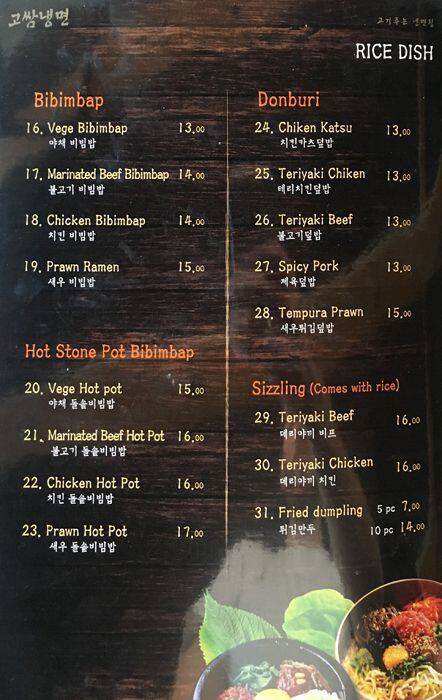 고쌈냉면
고기주는 냉면집
RICE DISH
Bibimbap
16. Vege Bibimbap 13.00
야채 비빔밥
17. Marinated Beef Bibimbap 14.00
불고기 비빔밥
18. Chicken Bibimbap 14.00
치킨 비빔밥
19. Prawn Ramen 15.00
새우 비빔밥
Hot Stone Pot Bibimbap
20. Vege Hot pot 15.00
야채 돌솥비빔밥
21. Marinated Beef Hot Pot 16.00
불고기 돌솥비빔밥
22. Chicken Hot Pot 16.00
치킨 돌솥비빔밥
23. Prawn Hot Pot 17.00
새우 돌솥비빔밥
Donburi
24. Chiken Katsu 13.00
치킨까츠덮밥
25. Teriyaki Chiken 13.00
테리치킨덮밥
26. Teriyaki Beef 13.00
불고기덮밥
27. Spicy Pork 13.00
제육덮밥
28. Tempura Prawn 15.00
새우튀김덮밥
Sizzling (Comes with rice)
29. Teriyaki Beef 16.00
데리야끼 비프
30. Teriyaki Chicken 16.00
데리야끼 치킨
31. Fried dumpling 5 pc 7.00
튀김만두 10 pc 14.00